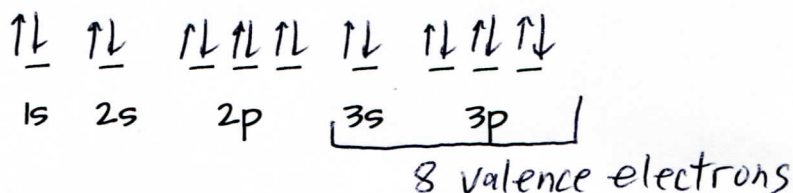 1s 2s 2p 3s 3p
8 valence electrons